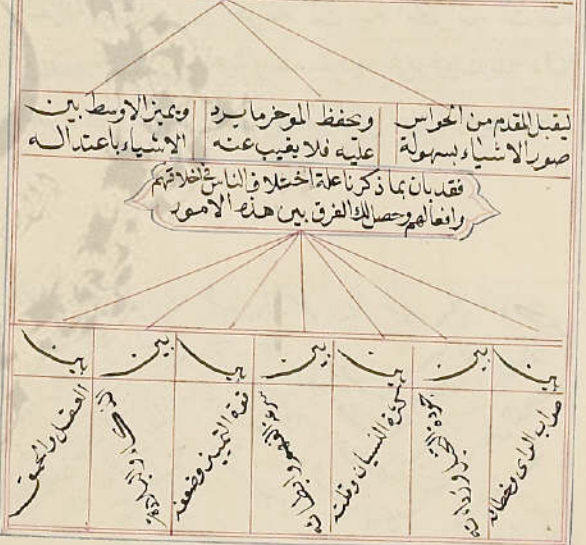 ليقبل المقدم من الحواس
صور الاشياء بسهولة
ويحفظ الموخر ما يرد
عليه فلا يغيب عنه
ويميز الاوسط بين
الاشياء باعتداله
فقد بان بما ذكرنا علة اختلاف الناس في اخلاقهم
وافعالهم وحصل لك الفرق بين هذه الامور
بين
صواب الراى وخطائه
بين
جودة التخيل ورداءته
بين
كثرة النسيان وقلته
بين
سرعة الفهم وابطائه
بين
قوة التمييز وضعفه
بين
الذكاء والبلادة
بين
العقل والحمق